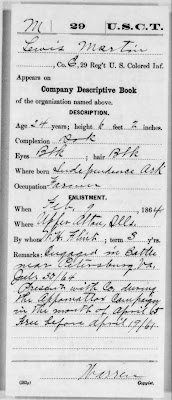 M 29 U.S.C.T.
Lewis Martin
, Co. E, 29 Reg't U. S. Colored Inf.
Appears on
Company Descriptive Book
of the organization named above.
DESCRIPTION.
Age 24 years; height 6 feet 2 inches.
Complexion Dark
Eyes Blk ; hair Blk
Where born Independence Ark
Occupation Farmer
ENLISTMENT.
When 9 , 1864
Where Upper Alton, Ills.
By whom Flint ; term 3 y'rs.
Remarks: Engaged in Battle
near Petersburg Va.
July 30/64
Present with Co. during
the Appomattox Campaign
in the month of April 65
free before April 19/61.
Warren
Copyist.